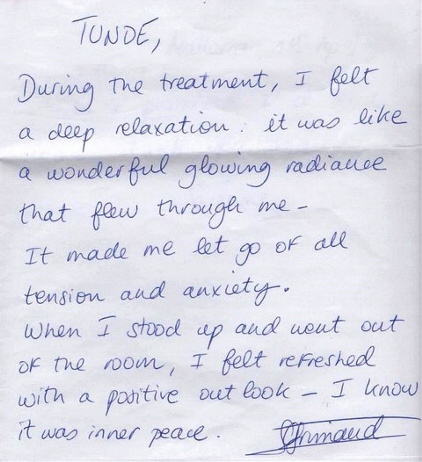 TUNDE,
During the treatment, I felt
a deep relaxation: it was like
a wonderful glowing radiance
that flew through me -
It made me let go of all
tension and anxiety.
When I stood up and went out
of the room, I felt refreshed
with a positive out look - I know
it was inner peace.